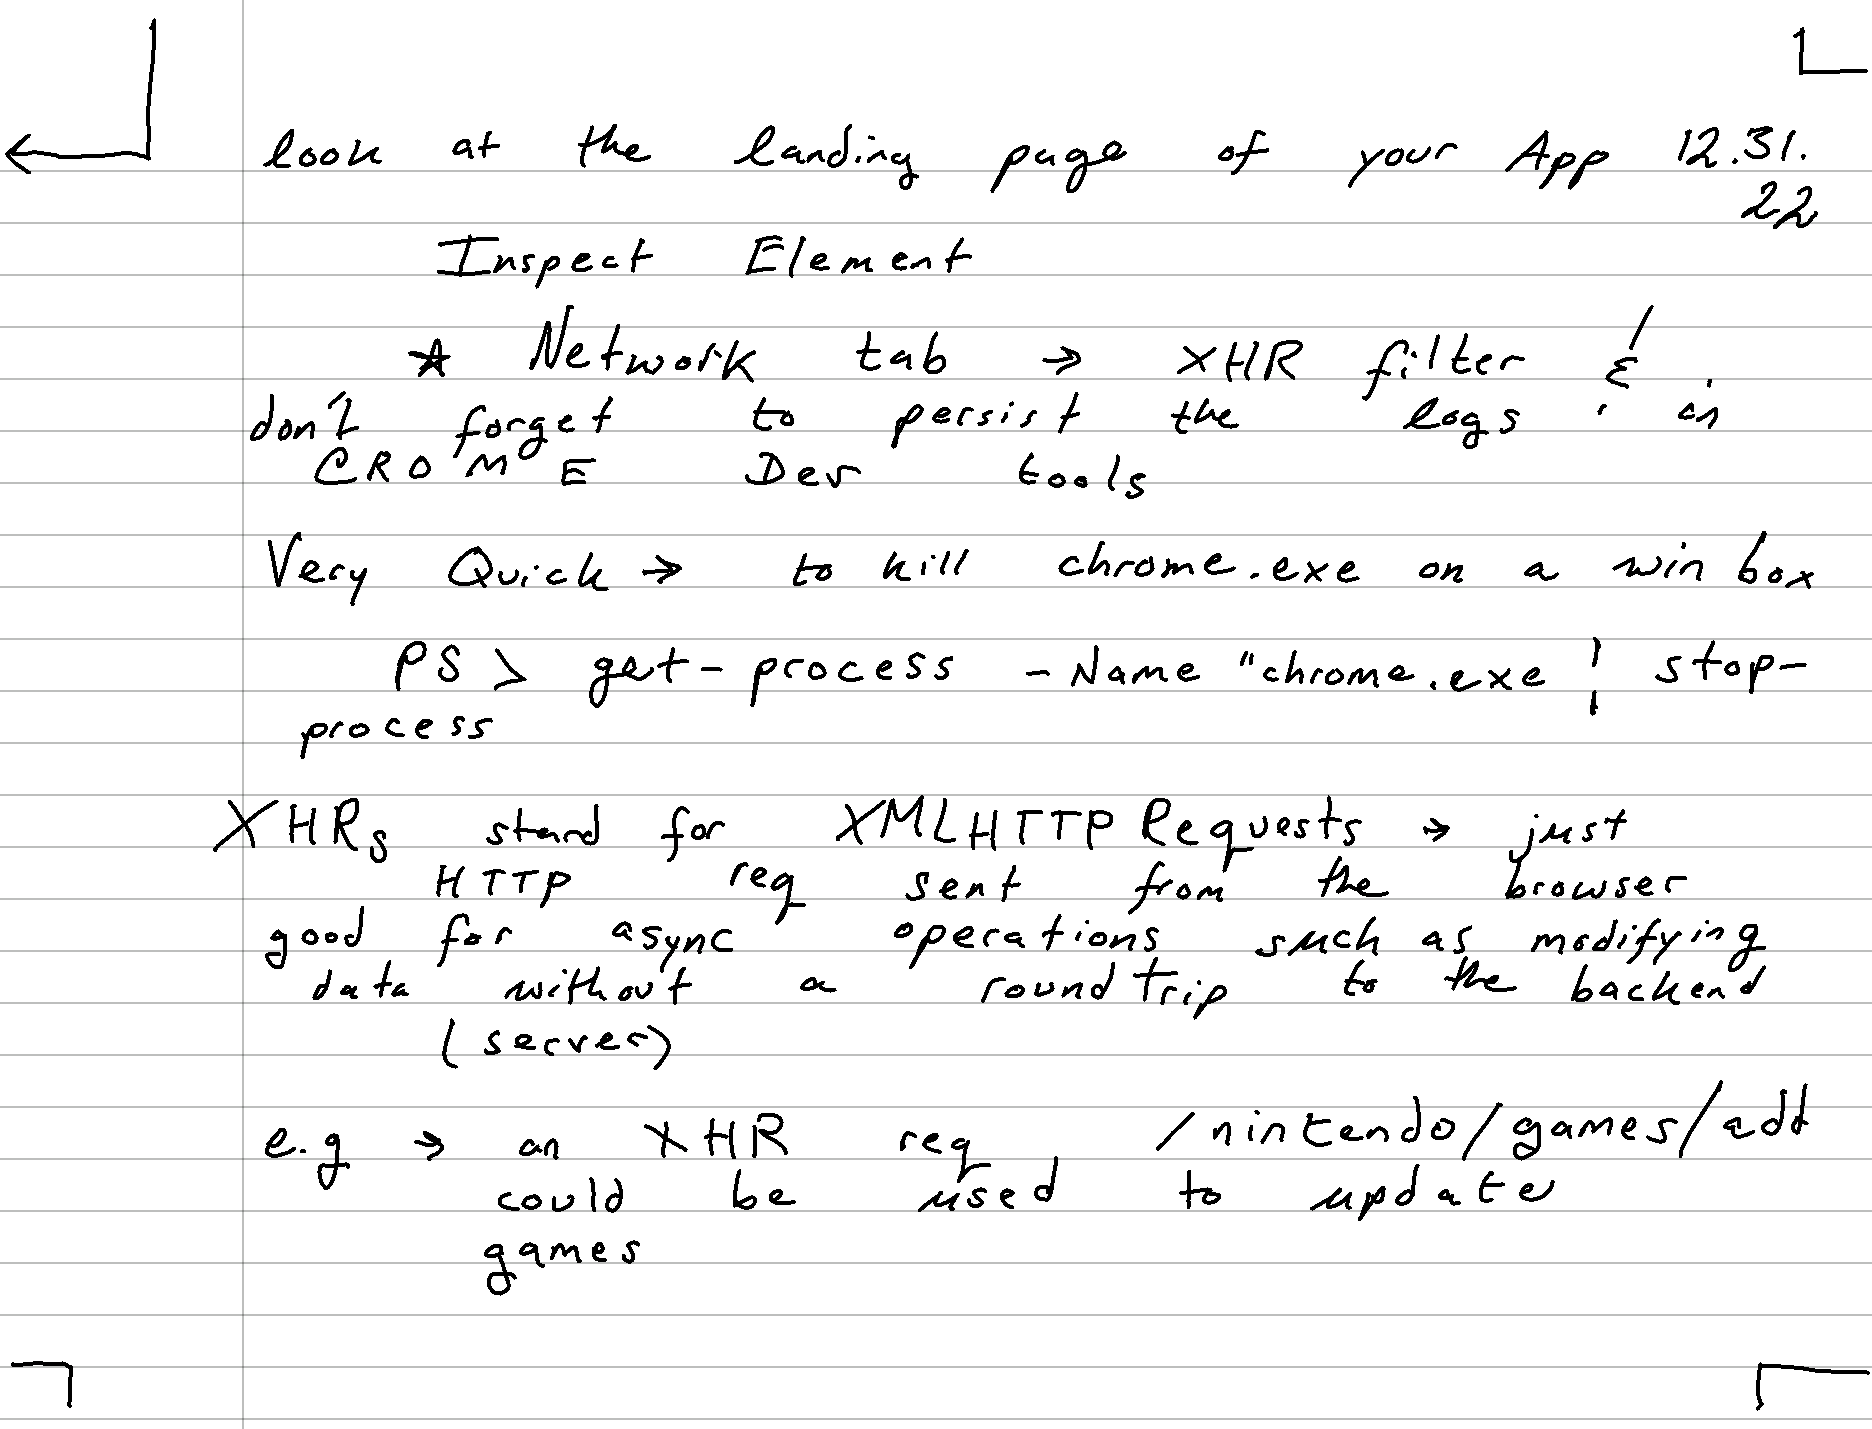 look at the landing page of your App 12.31.
22
Inspect Element
* Network tab → XHR filter &
don't forget to persist the logs! in
CROME Dev tools
Very Quick → to kill chrome.exe on a win box
PS > get-process -Name "chrome.exe ¦ stop-
process
XHRs stand for XMLHTTP Requests → just
HTTP req sent from the browser
good for async operations such as modifying
data without a round trip to the backend
(server)
e.g → an XHR req /nintendo/games/add
could be used to update
games